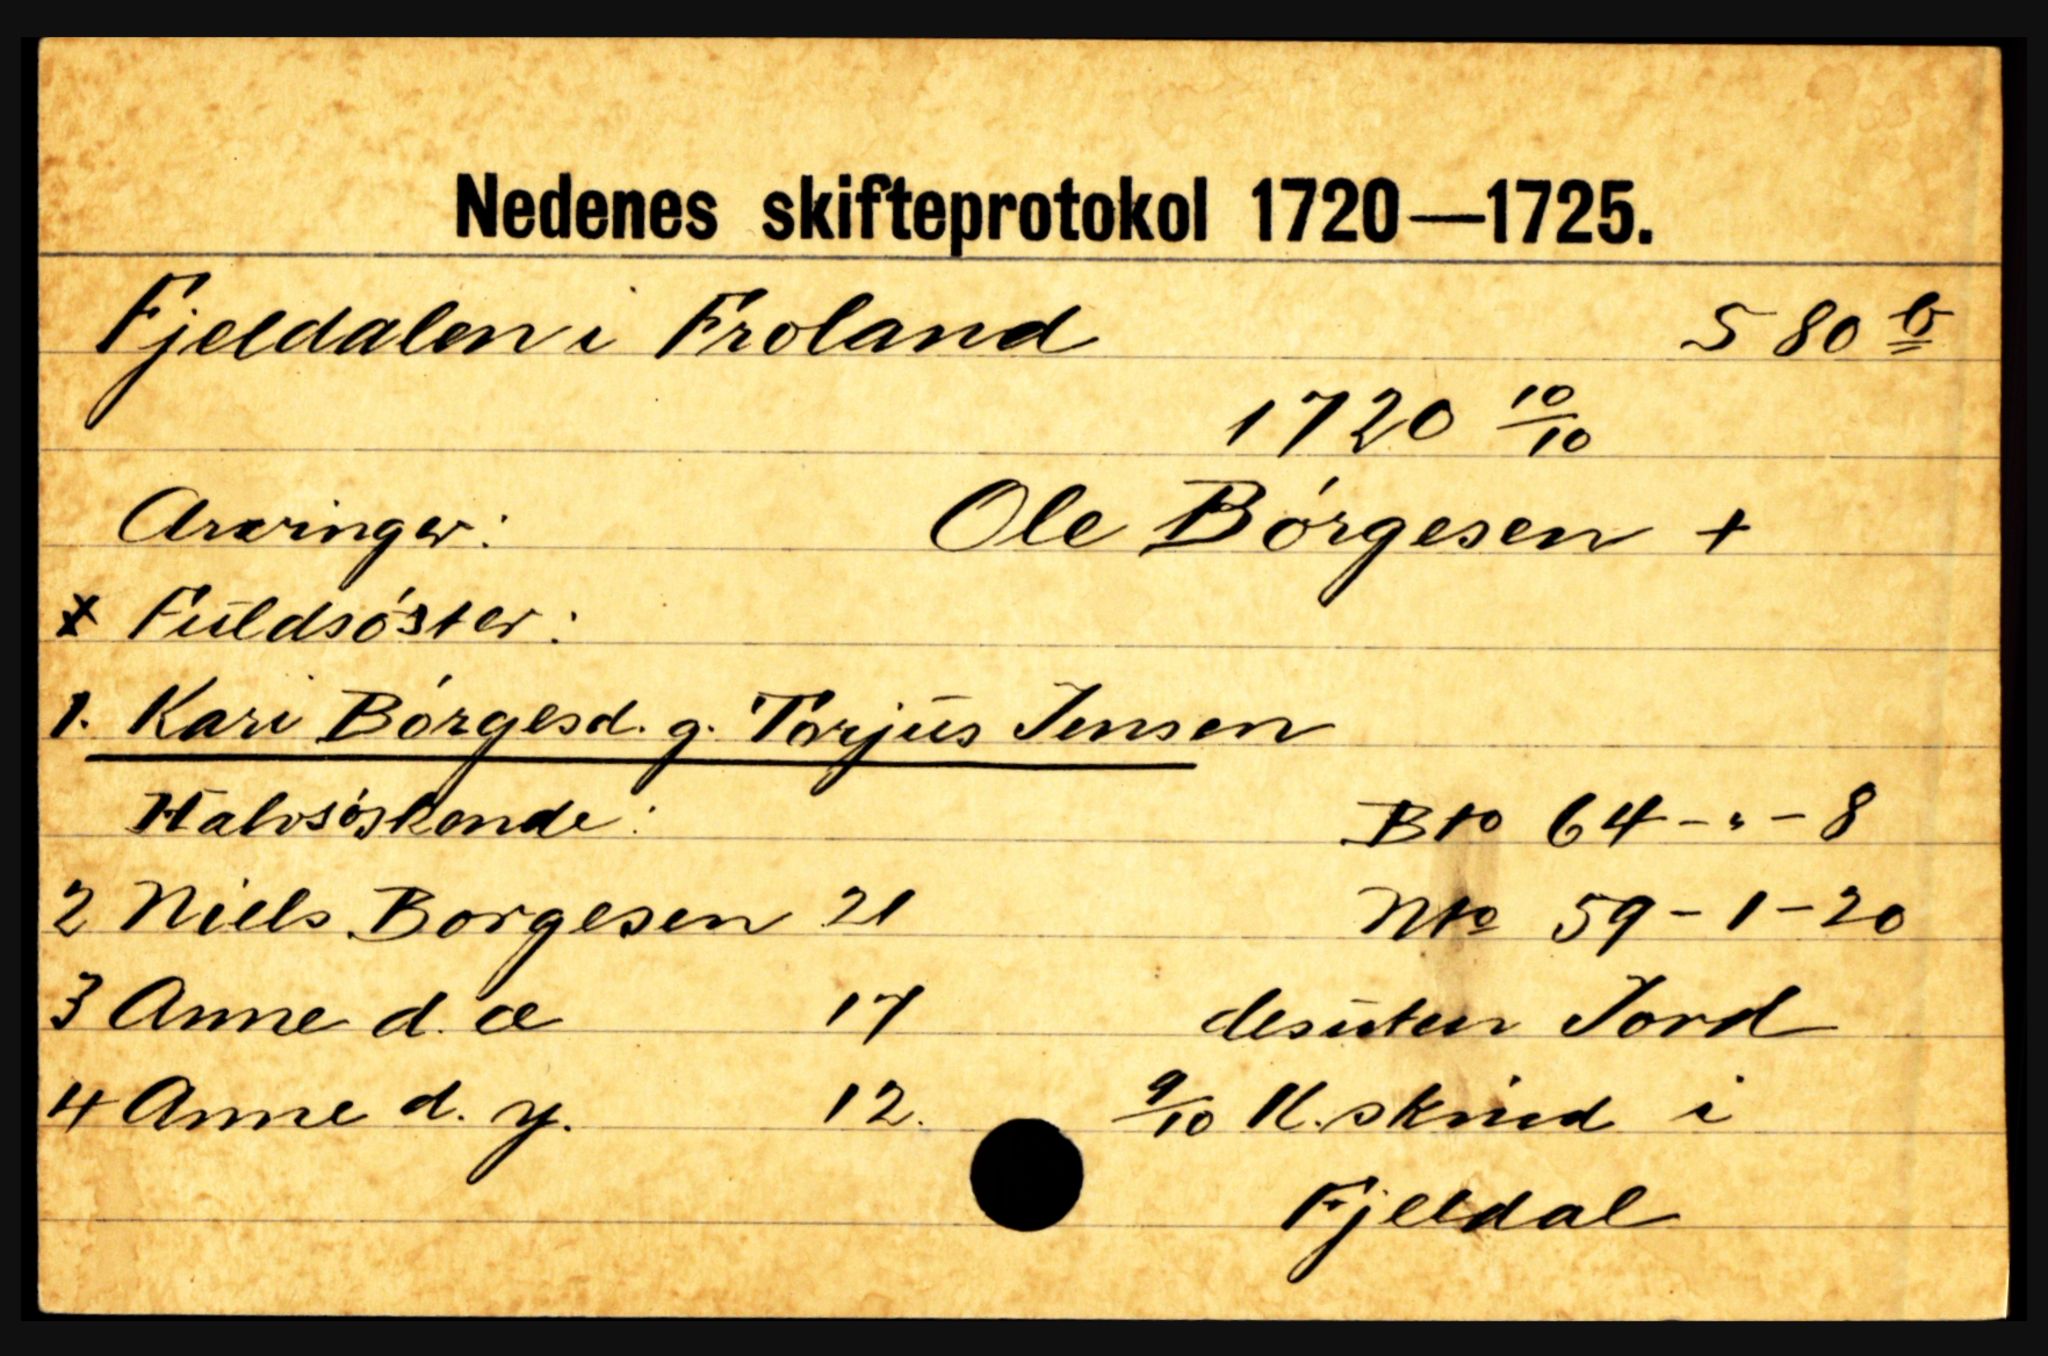 Nedenes skifteprotokol 1720—1725.
Fjeldalen i Froland 580 b
1720 10/10
Arvinger: Ole Börgesen +
Fuldsöster:
1. Kari Börgesd. g. Torjus Jensen
Halvsöskende: Bto 64-"-8
2 Niels Borgesen 21 Nto 59-1-20
3 Anne d. æ 17 desuten Jord
4 Anne d. y. 12. 9/10 K.skind i
Fjeldal